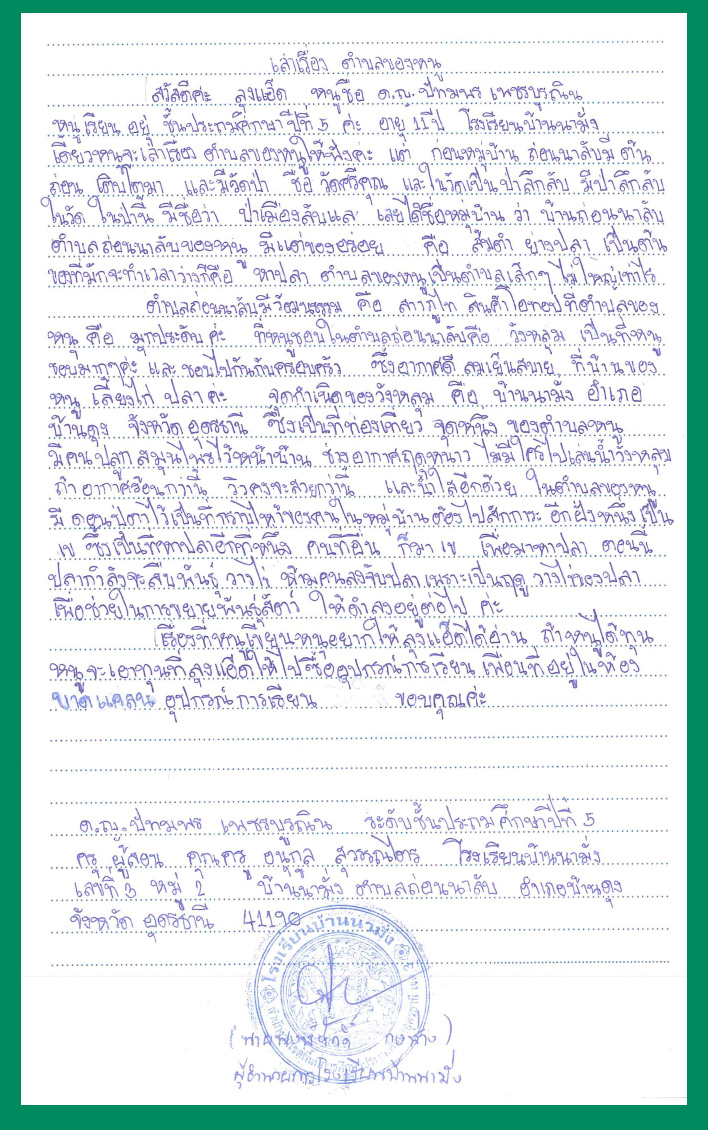 เล่าเรื่อง ตำบลของหนู
สวัสดีค่ะ ลุงแอ็ด หนูชื่อ ด.ญ.ปัทมพร เพชรบูรณิน
หนูเรียนอยู่ ชั้นประถมศึกษาปีที่ 5 ค่ะ อายุ 11 ปี โรงเรียนบ้านนามั่ง
เดี๋ยวหนูจะเล่าเรื่อง ตำบลของหนูให้ฟังค่ะ แต่ ก่อนหมู่บ้าน ถ่อนนาลับมี ต้น
ถ่อน เติบโตมา และมีวัดป่า ชื่อ วัดศรีคุณ และในวัดเป็นป่าลึกลับ มีป่าลึกลับ
ในวัด ในป่านี้ มีชื่อว่า ป่าเมืองลับแล เลยได้ชื่อหมู่บ้าน ว่า บ้านถ่อนนาลับ
ตำบลถ่อนนาลับของหนู มีแต่ของอร่อย คือ ส้มตำ ย่างปลา เป็นต้น
ของที่มักจะทำเวลาว่างก็คือ หาปลา ตำบลของหนูเป็นตำบลเล็กๆ ไม่ใหญ่เท่าไร
ตำบลถ่อนนาลับมีวัฒนธรรม คือ สาวภูไท สินค้าโอทอปที่ตำบลของ
หนู คือ มุกประดับค่ะ ที่หนูชอบในตำบลถ่อนนาลับคือ วังหลุม เป็นที่หนู
ชอบมากๆค่ะ และ ชอบไปกันกับครอบครัว ซึ่งอากาศดี ลมเย็นสบาย ที่บ้านของ
หนู เลี้ยงไก่ ปลาค่ะ จุดกำเนิดของวังหลุม คือ บ้านนามั่ง อำเภอ
บ้านดุง จังหวัด อุดรธานี ซึ่งเป็นที่ท่องเที่ยว จุดหนึ่ง ของตำบลหนู
มีคนปลูกสมุนไพรไว้หน้าบ้าน ช่วงอากาศฤดูหนาว ไม่มีใครไปเล่นน้ำวังหลุม
ถ้า อากาศร้อนกว่านี้ วิวคงจะสวยกว่านี้ และน้ำใสอีกด้วย ในตำบลของหนู
มี ดอนปู่ตาไว้เป็นที่กราบไหว้ของคนในหมู่บ้านต้องไปสักการะ อีกฝั่งหนึ่งเป็น
เข ซึ่งเป็นที่หาปลาอีกที่หนึ่ง คนที่อื่น ก็มา เข เพื่อมาหาปลา ตอนนี้
ปลากำลังจะสืบพันธุ์ วางไข่ ห้ามคนลงจับปลาเพราะเป็นฤดู วางไข่ของปลา
เพื่อช่วยในการขยายพันธุ์สัตว์ ให้ดำลงอยู่ต่อไป ค่ะ
เรื่องที่หนูเขียนหนูอยากให้ลุงแอ็ดได้อ่าน ถ้าหนูได้ทุน
หนูจะเอาทุนที่ลุงแอ็ดให้ไปซื้ออุปกรณ์การเรียน เพื่อนที่อยู่ในห้อง
ขาดแคลน อุปกรณ์การเรียน ขอบคุณค่ะ
ด.ญ.ปัทมพร เพชรบูรณิน ระดับชั้นประถมศึกษาปีที่ 5
ครู ผู้สอน คุณครู อนุกูล สุวรรณไตร โรงเรียนบ้านนามั่ง
เลขที่ 3 หมู่ 2 บ้านนามั่ง ตำบลถ่อนนาลับ อำเภอบ้านดุง
จังหวัด อุดรธานี 41190
โรงเรียนบ้านนามั่ง
ผู้อำนวยการโรงเรียนบ้านนามั่ง